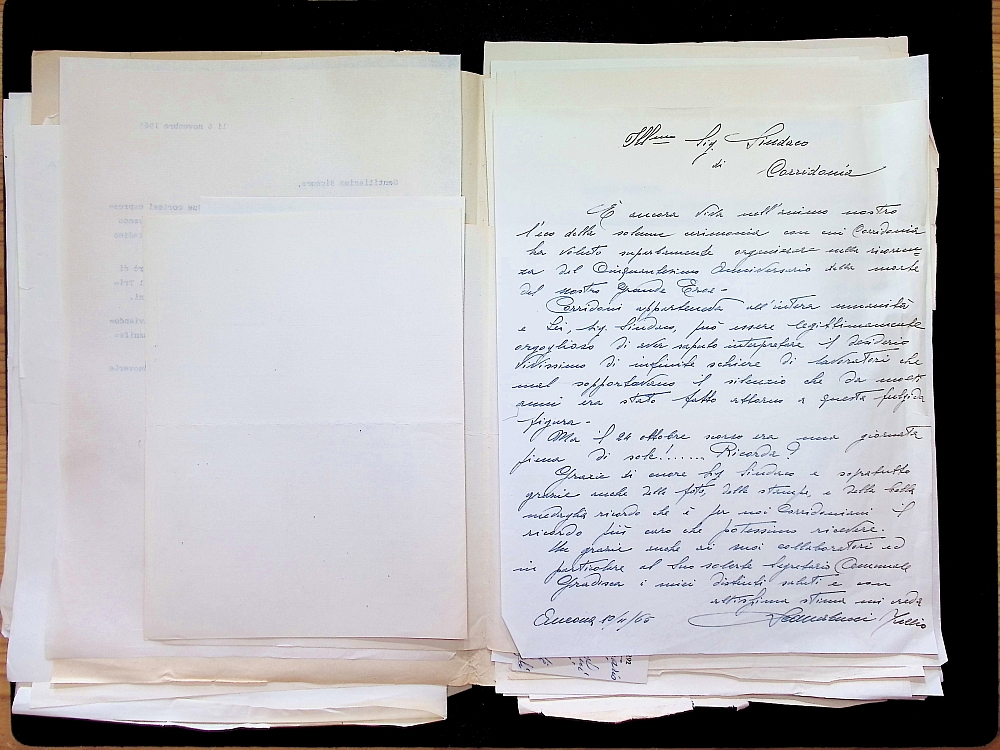 Ill.mo Sig. Sindaco
di Corridonia
È ancora viva nell'animo nostro
l'eco della solenne cerimonia con cui Corridonia
ha voluto superbamente organizzare nella ricorren=
za del Cinquantesimo Anniversario della morte
del nostro Grande Eroe -
Corridoni apparteneva all'intera umanità
e Lei, Sig. Sindaco, può essere legittimamente
orgoglioso di aver saputo interpretare il desiderio
vivissimo di infinite schiere di lavoratori che
mal sopportavano il silenzio che da molti
anni era stato fatto attorno a questa fulgida
figura -
Ma il 24 ottobre scorso era una giornata
piena di sole!...... Ricorda?
Grazie di cuore Sig. Sindaco e sopratutto
grazie anche delle foto, delle stampe, e della bella
medaglia ricordo che è per noi Corridoniani il
ricordo più caro che potessimo ricevere.
Un grazie anche ai suoi collaboratori ed
in particolare al Suo solerte Segretario Comunale
Gradisca i miei distinti saluti e con
altissima stima mi creda
Ancona 10/11/65
li 6 novembre
Gentilissimo Signore,